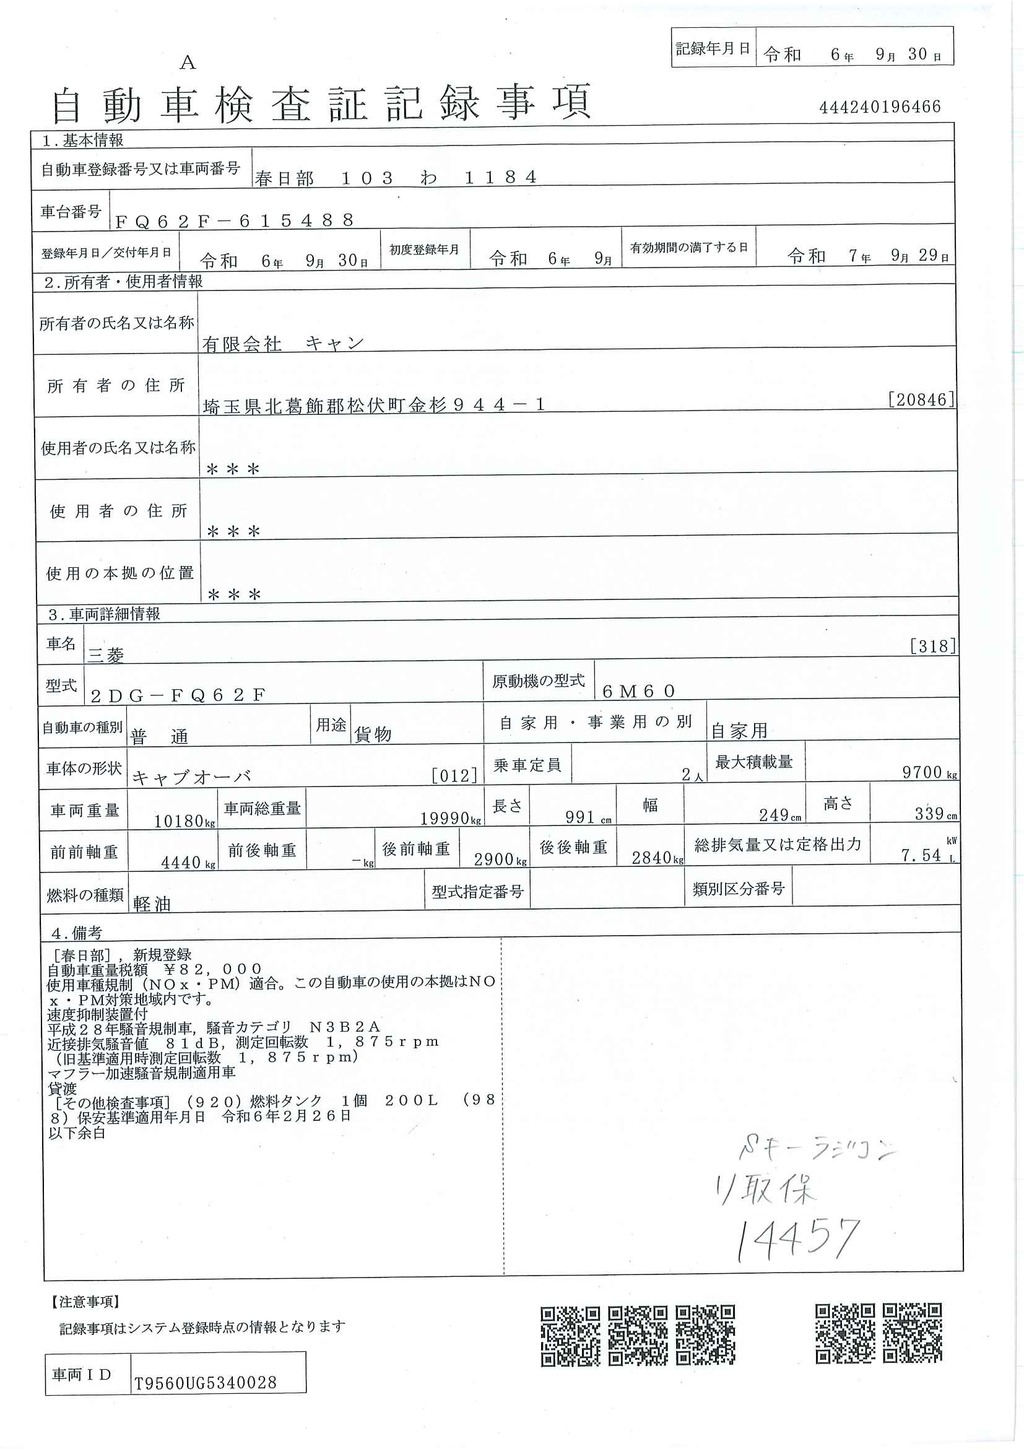 記録年月日 令和 6年 9月 30日
A
自動車検査証記録事項
444240196466
1.基本情報
自動車登録番号又は車両番号 春日部 103 わ 1184
車台番号 FQ62F－615488
登録年月日／交付年月日 令和 6年 9月 30日 初度登録年月 令和 6年 9月 有効期間の満了する日 令和 7年 9月 29日
2.所有者・使用者情報
所有者の氏名又は名称 有限会社 キャン
所有者の住所 埼玉県北葛飾郡松伏町金杉944－1 [20846]
使用者の氏名又は名称 ＊＊＊
使用者の住所 ＊＊＊
使用の本拠の位置 ＊＊＊
3.車両詳細情報
車名 三菱 [318]
型式 2DG－FQ62F 原動機の型式 6M60
自動車の種別 普 通 用途 貨物 自家用・事業用の別 自家用
車体の形状 キャブオーバ [012] 乗車定員 2人 最大積載量 9700kg
車両重量 10180kg 車両総重量 19990kg 長さ 991cm 幅 249cm 高さ 339cm
前前軸重 4440kg 前後軸重 －kg 後前軸重 2900kg 後後軸重 2840kg 総排気量又は定格出力 7.54 kW L
燃料の種類 軽油 型式指定番号 類別区分番号
4.備考
[春日部]，新規登録
自動車重量税額 ￥82，000
使用車種規制（NOx・PM）適合。この自動車の使用の本拠はNO
x・PM対策地域内です。
速度抑制装置付
平成28年騒音規制車，騒音カテゴリ N3B2A
近接排気騒音値 81dB，測定回転数 1，875rpm
（旧基準適用時測定回転数 1，875rpm）
マフラー加速騒音規制適用車
貸渡
[その他検査事項]（920）燃料タンク 1個 200L （98
8）保安基準適用年月日 令和6年2月26日
以下余白
Sキーラジコン
リ取保
14457
【注意事項】
記録事項はシステム登録時点の情報となります
車両ID T9560UG5340028